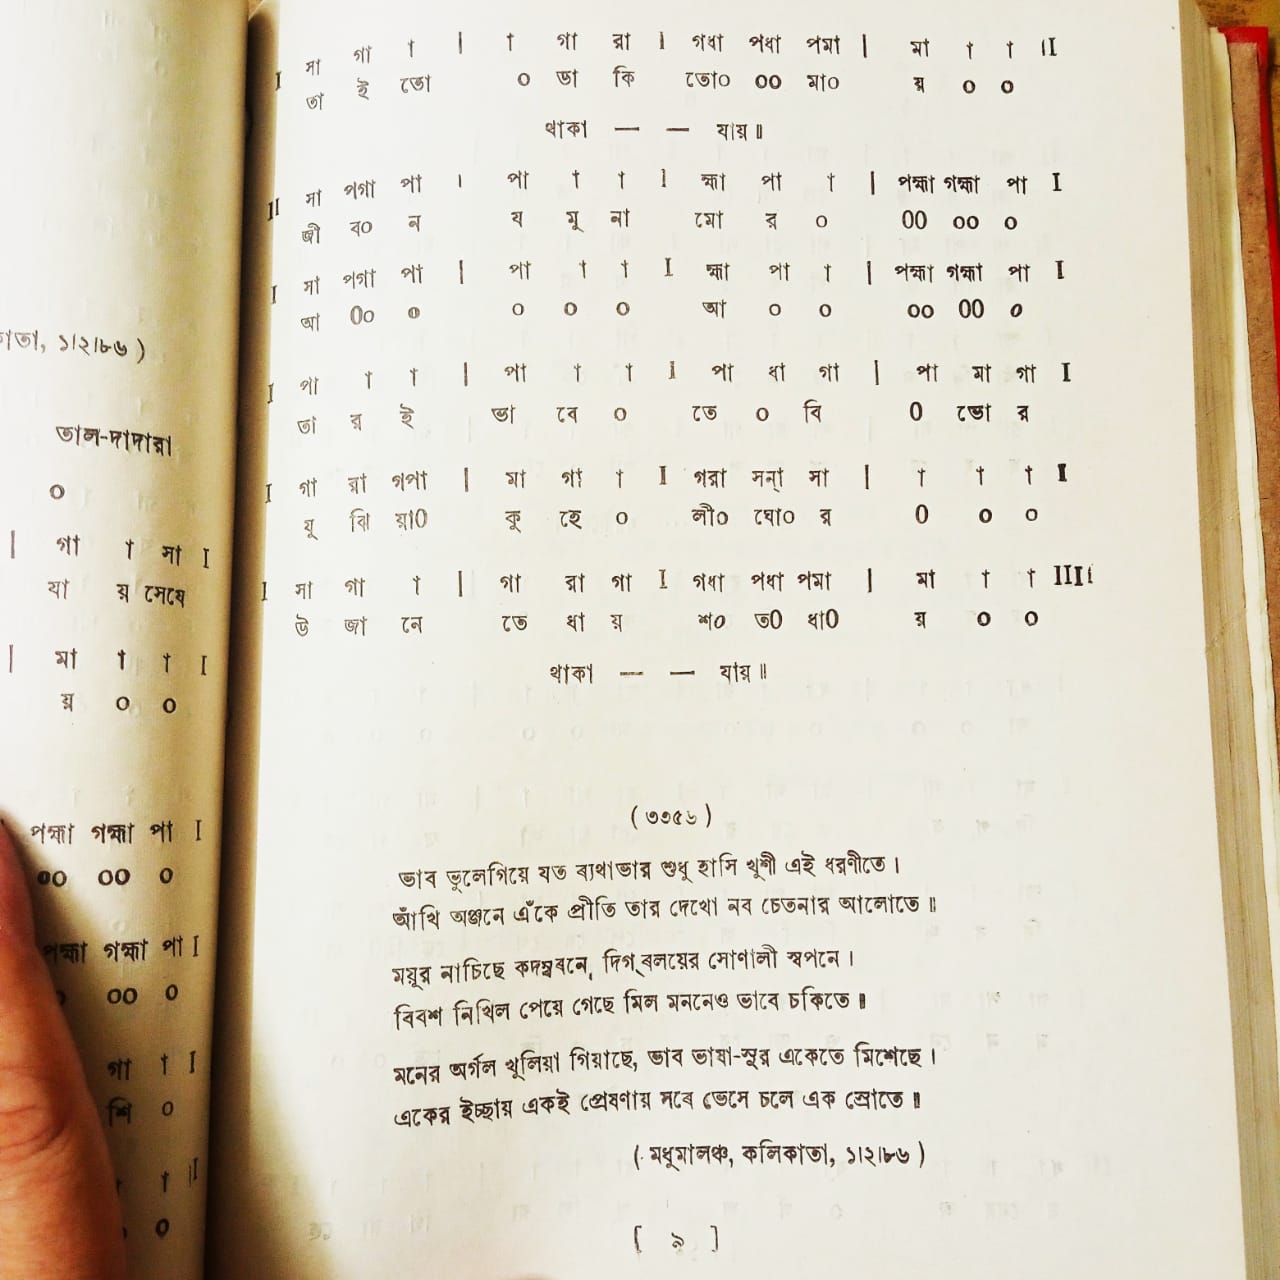 তা, ১।২।৮৬ )
তাল-দাদরা
০
| গা † সা I
যা য় সেধে
| মা † † I
য় ০ ০
পহ্মা গহ্মা পা I
০০ ০০ ০
পহ্মা গহ্মা পা I
০০ ০
গা † I
শি ০
† † I
০
I সা গা † | † গা রা I গধা পধা পমা | মা † † II
তা ই তো ০ ডা কি তো০ ০০ মা০ য় ০ ০
থাকা — — যায়॥
II সা পগা পা । পা † † I হ্মা পা † | পহ্মা গহ্মা পা I
জী ব০ ন য মু না মো র ০ ০০ ০০ ০
I সা পগা পা | পা † † I হ্মা পা † | পহ্মা গহ্মা পা I
আ ০০ ০ ০ ০ ০ আ ০ ০ ০০ ০০ ০
I পা † † | পা † † I পা ধা গা | পা মা গা I
তা র ই ভা বে ০ তে ০ বি ০ ভো র
I গা রা গপা | মা গা † I গরা সন্া সা | † † † I
যু ঝি য়া০ কু হে ০ লী০ ঘো০ র ০ ০ ০
I সা গা † | গা রা গা I গধা পধা পমা | মা † † IIII
উ জা নে তে ধা য় শ০ ত০ ধা০ র ০ ০
থাকা — — যায়॥
( ৩৩৫৬ )
ভাব ভুলেগিয়ে যত ব্যথাভার শুধু হাসি খুশী এই ধরণীতে।
আঁখি অঞ্জনে এঁকে প্রীতি তার দেখো নব চেতনার আলোতে॥
ময়ূর নাচিছে কদম্ববনে, দিগ্‌বলয়ের সোণালী স্বপনে।
বিবশ নিখিল পেয়ে গেছে মিল মননেও ভাবে চকিতে॥
মনের অর্গল খুলিয়া গিয়াছে, ভাব ভাষা-সুর একেতে মিশেছে।
একের ইচ্ছায় একই প্রেষণায় সবে ভেসে চলে এক স্রোতে॥
( মধুমালঞ্চ, কলিকাতা, ১।২।৮৬ )
[ ৯ ]